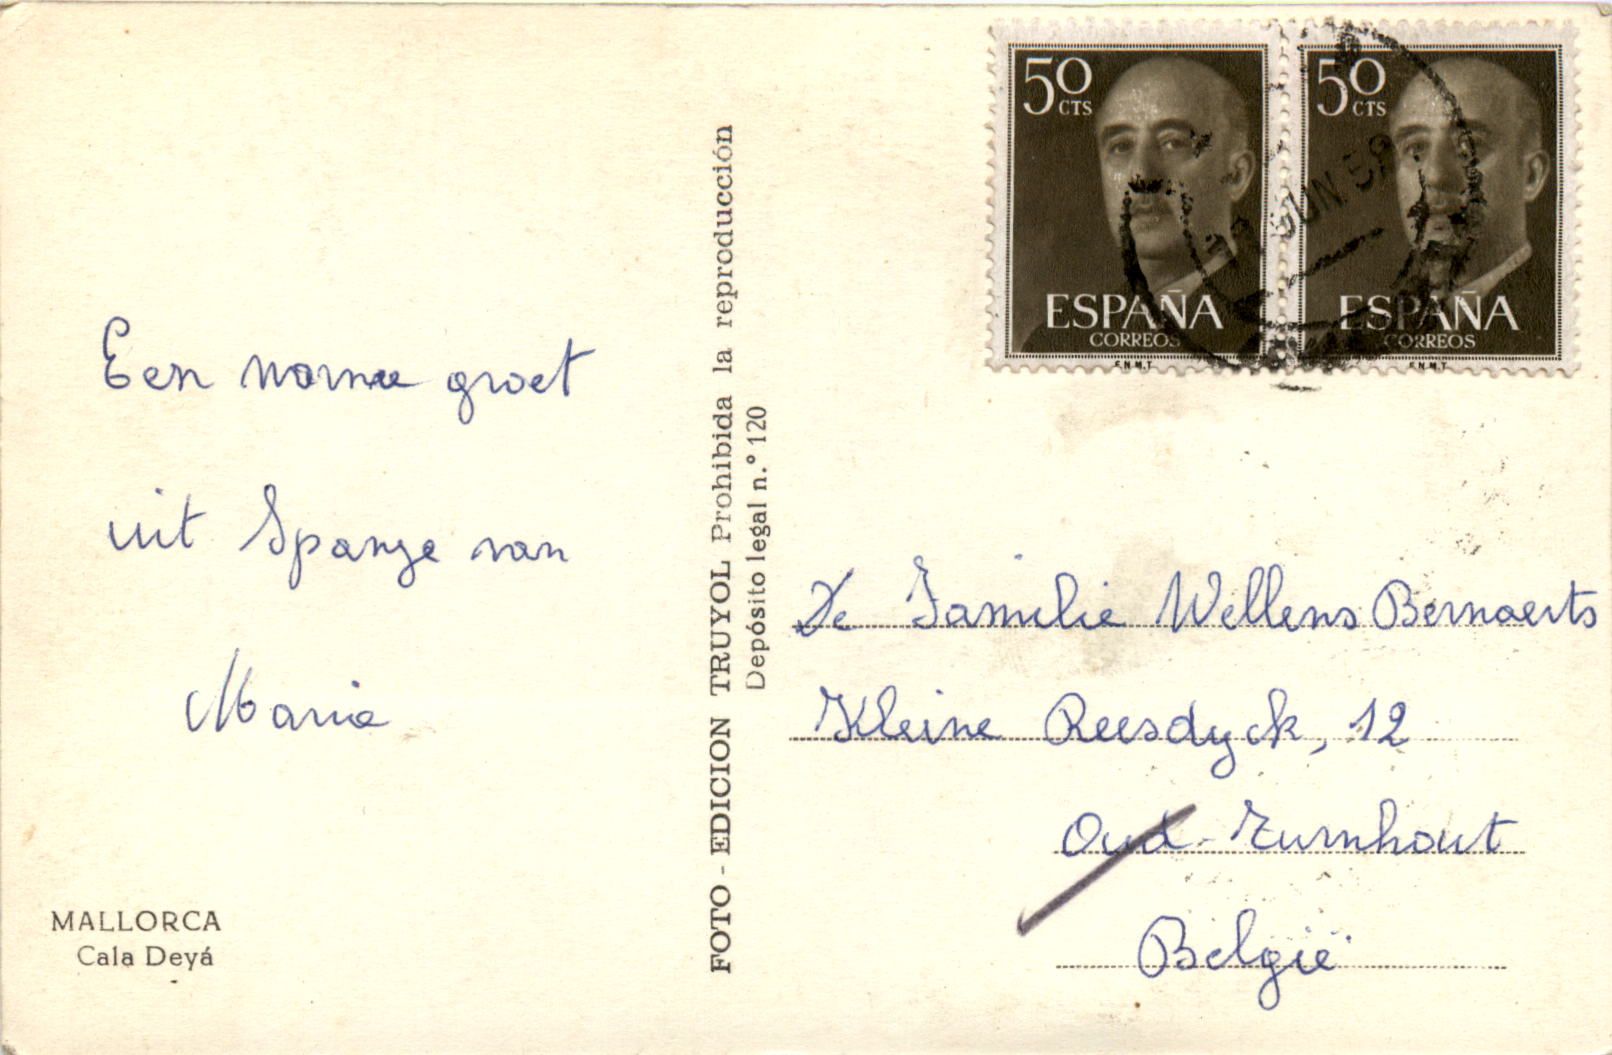 Een warme groet
uit Spanje van
Maria
MALLORCA
Cala Deyá
FOTO - EDICION TRUYOL Prohibida la reproducción
Depósito legal n.° 120
50 CTS
ESPAÑA
CORREOS
F.N.M.T
50 CTS
ESPAÑA
CORREOS
F.N.M.T
JUN 59
De Familie Wellens Bernaerts
Kleine Reesdyck, 12
Oud-Turnhout
België